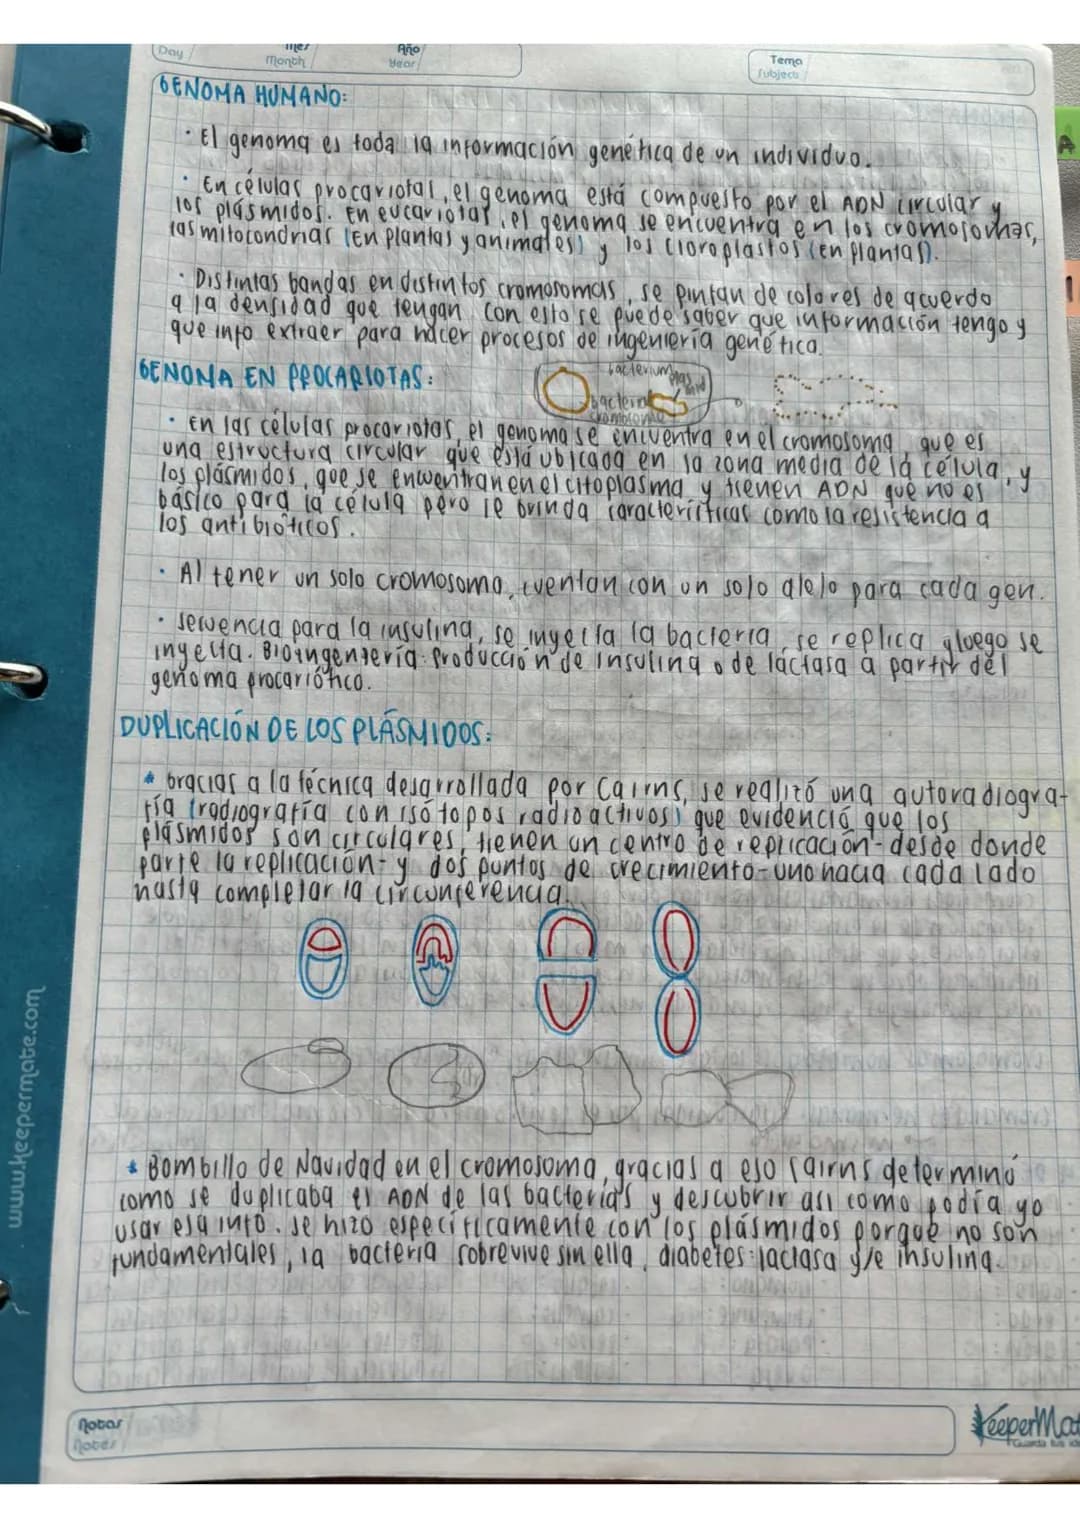 Day
Mes
Month
Año
Year
Tema
Subject
GENOMA HUMANO:
· El genoma es toda la información genética de un individuo.
· En células procariotas, el genoma está compuesto por el ADN circular y
los plásmidos. En eucariotas, el genoma se encuentra en los cromosomas,
las mitocondrias (En plantas y animales) y los cloroplastos (en plantas).
· Distintas bandas en distintos cromosomas, se pintan de colores de acuerdo
a la densidad que tengan. Con esto se puede saber que información tengo y
que info extraer para hacer procesos de ingeniería genética.
GENOMA EN PROCARIOTAS:
bacterium
plasmid
bacterial
· En las células procariotas, el genoma se encuentra en el cromosoma, que es
una estructura circular que está ubicada en la zona media de la célula, y
los plásmidos, que se encuentran en el citoplasma y tienen ADN que no es
básico para la célula pero le brinda características como la resistencia a
los antibióticos.
· Al tener un solo cromosoma, cuentan con un solo alelo para cada gen.
· Secuencia para la insulina, se inyecta la bacteria, se replica y luego se
inyecta. Bioingeniería: Producción de insulina o de lactasa a partir del
genoma procariótico.
DUPLICACIÓN DE LOS PLÁSMIDOS:
* Gracias a la técnica desarrollada por Cairns, se realizó una autoradiogra-
fía (radiografía con isótopos radioactivos) que evidenció que los
plásmidos son circulares, tienen un centro de replicación - desde donde
parte la replicación - y dos puntos de crecimiento - uno hacia cada lado
hasta completar la circunferencia.
* Bombillo de Navidad en el cromosoma, gracias a eso Cairns determinó
como se duplicaba el ADN de las bacterias y descubrir así como podía yo
usar esa info. Se hizo específicamente con los plásmidos porque no son
fundamentales, la bacteria sobrevive sin ella, diabetes: lactasa y/e insulina.
Notas
Notes
KeeperMat
Guarda tus
www.keepermate.com
A
1